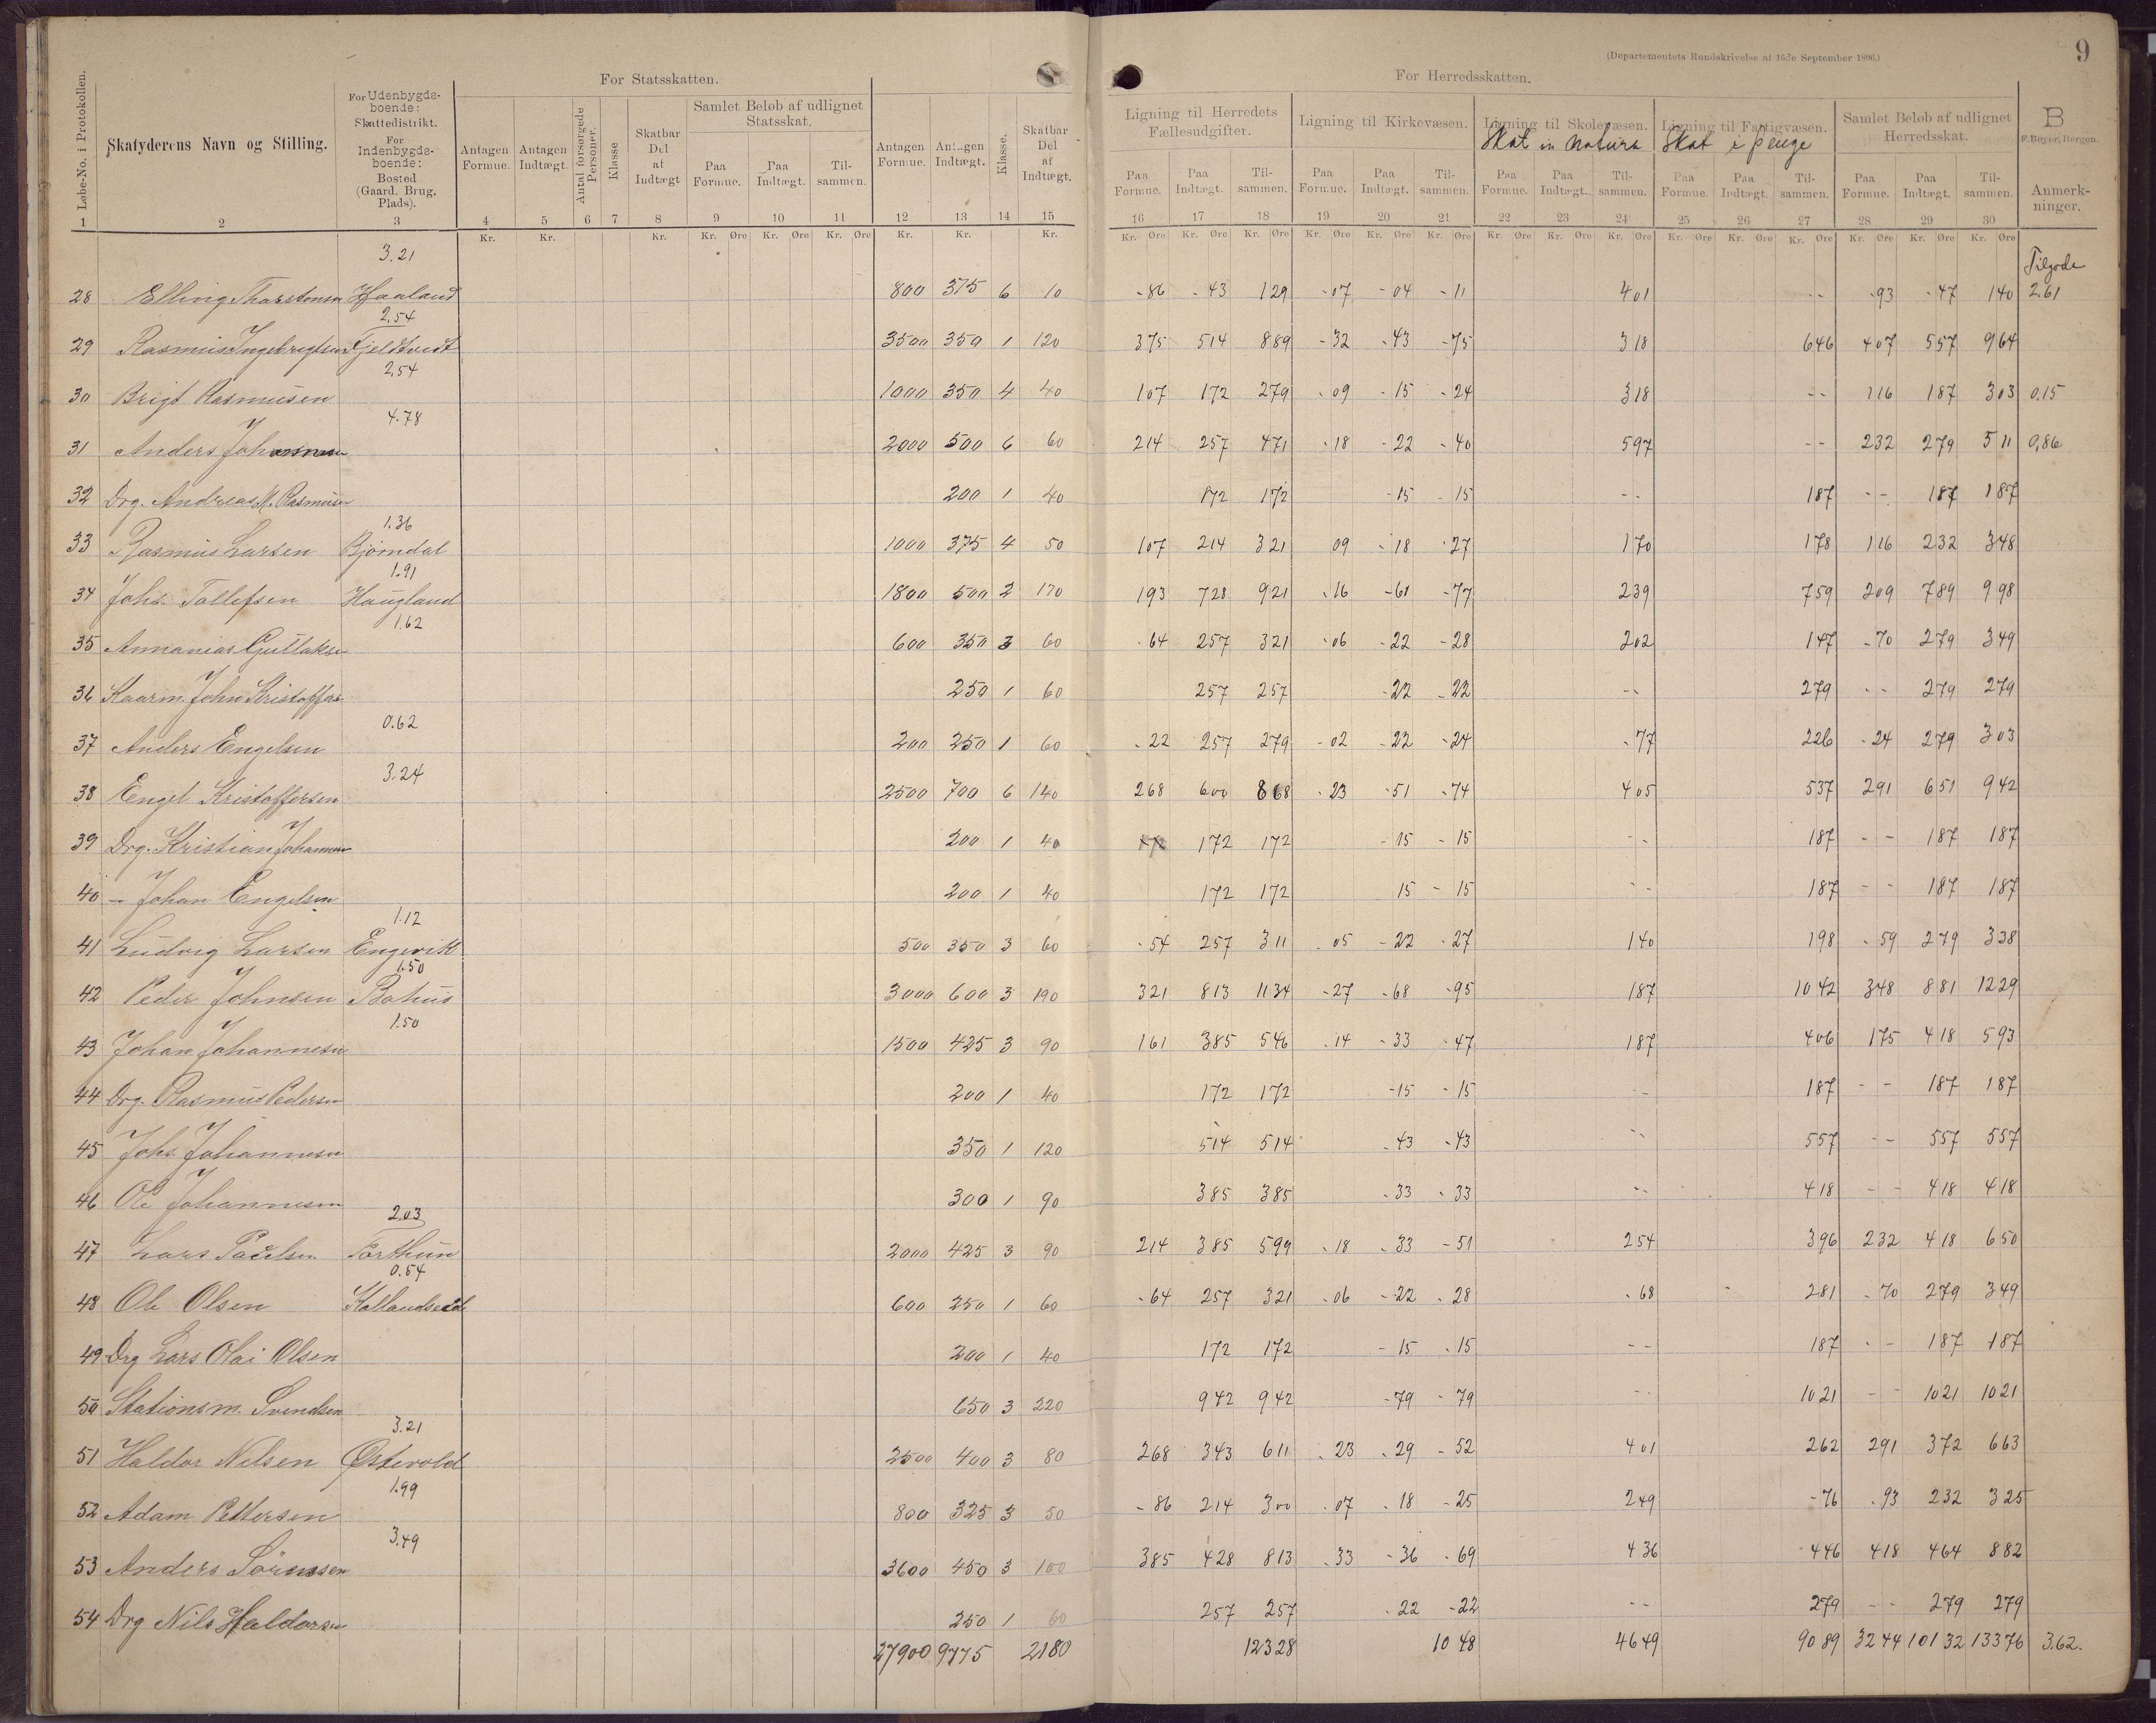 (Departementets Rundskrivelse af 16de September 1896.)
9
For Statsskatten.
For Herredsskatten.
Løbe-No. i Protokollen.
Skatyderens Navn og Stilling.
For Udenbygdsboende: Skattedistrikt. For Indenbygdsboende: Bosted (Gaard. Brug, Plads).
Antagen Formue. Antagen Indtægt. Antal forsørgede Personer. Klasse Skatbar Del af Indtægt
Samlet Beløb af udlignet Statsskat. Paa Formue. Paa Indtægt. Tilsammen.
Antagen Formue. Antagen Indtægt. Klasse. Skatbar Del af Indtægt.
Ligning til Herredets Fællesudgifter. Paa Formue. Paa Indtægt. Tilsammen.
Ligning til Kirkevæsen. Paa Formue. Paa Indtægt. Tilsammen.
Ligning til Skolevæsen. Skat in natura Paa Formue. Paa Indtægt. Tilsammen.
Ligning til Fattigvæsen. Skat i penge Paa Formue. Paa Indtægt. Tilsammen.
Samlet Beløb af udlignet Herredsskat. Paa Formue. Paa Indtægt. Tilsammen.
B
F. Beyer, Bergen.
Anmerkninger.
1 2 3 4 5 6 7 8 9 10 11 12 13 14 15 16 17 18 19 20 21 22 23 24 25 26 27 28 29 30
Kr. Kr. Kr. Kr. Øre Kr. Øre Kr. Øre Kr. Kr. Kr. Kr. Øre Kr. Øre Kr. Øre Kr. Øre Kr. Øre Kr. Øre Kr. Øre Kr. Øre Kr. Øre Kr. Øre Kr. Øre Kr. Øre Kr. Øre Kr. Øre Kr. Øre
3.21 Tilgode
28 Elling Thorstensen Haaland 800 375 6 10 -86 -43 129 -07 -04 -11 401 -- -93 -47 140 2.61
2.54
29 Rasmus Ingebregtsen Fjeldtvedt 3500 350 1 120 375 514 889 -32 -43 -75 318 646 407 557 964
2.54
30 Brigt Rasmusen 1000 350 4 40 107 172 279 -09 -15 -24 318 -- 116 187 303 0.15
4.78
31 Anders Johannesen 2000 500 6 60 214 257 471 -18 -22 -40 597 -- 232 279 511 0,86
32 Drg. Andreas M. Rasmusen 200 1 40 172 172 -15 -15 -- 187 -- 187 187
1.36
33 Rasmus Larsen Bjørndal 1000 375 4 50 107 214 321 09 -18 -27 170 178 116 232 348
1.91
34 Johs. Tollefsen Haugland 1800 500 2 170 193 728 921 -16 -61 -77 239 759 209 789 998
1.62
35 Annanias Guttaksen 600 350 3 60 -64 257 321 -06 -22 -28 202 147 -70 279 349
36 Kaarm. John Kristoffers 250 1 60 257 257 -22 -22 -- 279 -- 279 279
0.62
37 Anders Engelsen 200 250 1 60 -22 257 279 -02 -22 -24 -77 226 -24 279 303
3.24
38 Engel Kristoffersen 2500 700 6 140 268 600 868 -23 -51 -74 405 537 291 651 942
39 Drg. Kristian Johannesen 200 1 40 172 172 -15 -15 -- 187 -- 187 187
40 - Johan Engelsen 200 1 40 172 172 15 -15 -- 187 -- 187 187
1.12
41 Ludvig Larsen Engevik 500 350 3 60 -54 257 311 -05 -22 -27 140 198 -59 279 338
1.50
42 Peder Johnsen Bahus 3000 600 3 190 321 813 1134 -27 -68 -95 187 1042 348 881 1229
1.50
43 Johan Johannesen 1500 425 3 90 161 385 546 -14 -33 -47 187 406 175 418 593
44 Drg. Rasmus Pedersen 200 1 40 172 172 -15 -15 -- 187 -- 187 187
45 Johs. Johannesen 350 1 120 514 514 -43 -43 -- 557 -- 557 557
46 Ole Johannesen 300 1 90 385 385 -33 -33 -- 418 -- 418 418
2.03
47 Lars Paulsen Forthun 2000 425 3 90 214 385 599 -18 -33 -51 254 396 232 418 650
0.54
48 Ole Olsen Kallandseid 600 250 1 60 -64 257 321 -06 -22 -28 -68 281 -70 279 349
49 Drg Lars Olai Olsen 200 1 40 172 172 -15 -15 -- 187 -- 187 187
50 Stationsm. Svendsen 650 3 220 942 942 -79 -79 -- 1021 -- 1021 1021
3.21
51 Haldor Nilsen Østevold 2500 400 3 80 268 343 611 -23 -29 -52 401 262 291 372 663
1.99
52 Adam Pettersen 800 325 3 50 -86 214 300 -07 -18 -25 249 -76 -93 232 325
3.49
53 Anders Sørensen 3600 450 3 100 385 428 813 -33 -36 -69 436 446 418 464 882
54 Drg Nils Haldorsen 250 1 60 257 257 -22 -22 -- 279 -- 279 279
27900 9775 2180 12328 1048 4649 9089 3244 10132 13376 3.62.